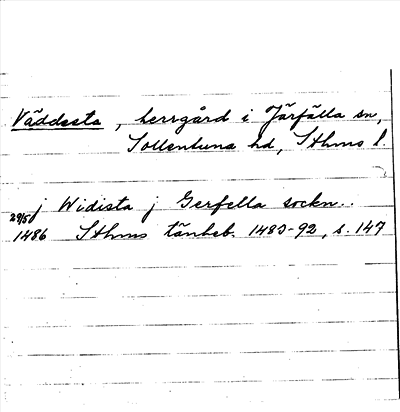 Väddesta, herrgård i Järfälla sn,
Sollentuna hd, Sthms l.
j Widista j Gerfella sockn..
29/5
1486 Sthms tänkeb. 1483-92, s. 147